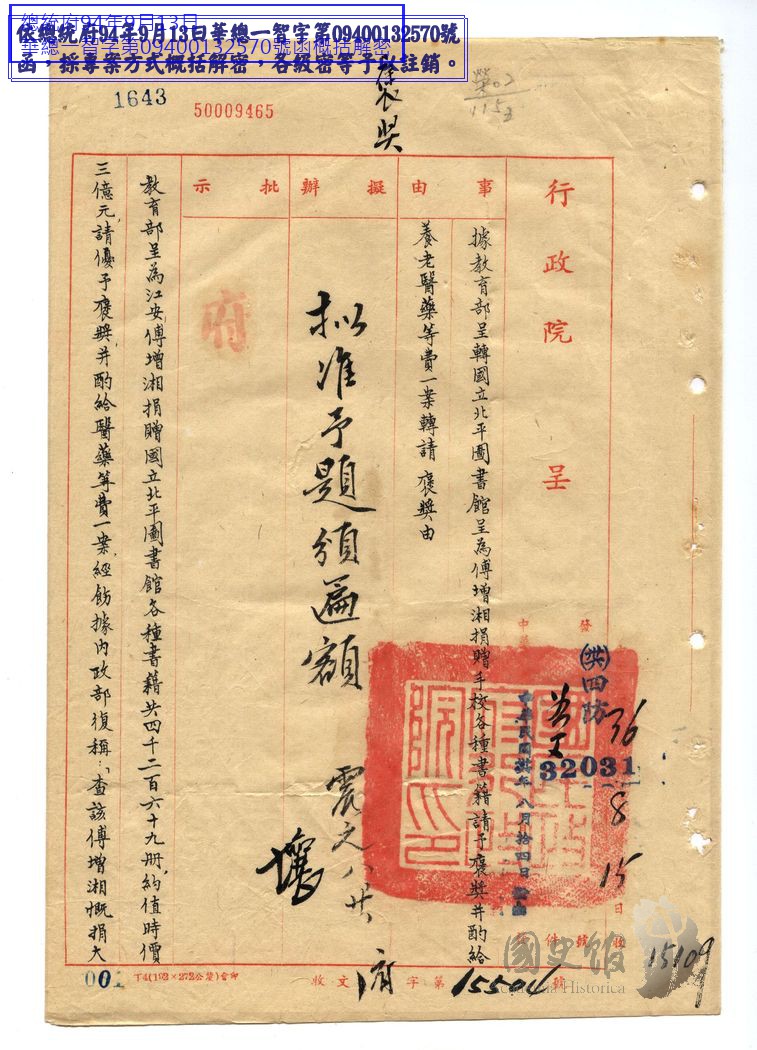 總統府94年9月13日
華總一智字第09400132570號函概括解密
依總統府94年9月13日華總一智字第09400132570號
函，採專案方式概括解密，各級密等予以註銷。
1643
50009465
褒奖
行政院 呈
事由
擬辦
批示
據教育部呈轉國立北平圖書館呈為傅增湘捐贈手校各種書籍請予褒獎并酌給
養老醫藥等費一案轉請 褒獎由
拟准予題頒匾額
府
教育部呈為江安傅增湘捐贈國立北平圖書館各種書籍共四千二百六十九册，約值時價
三億元，請優予褒獎，并酌給醫藥等費一案，經飭據內政部復稱：「查該傅增湘慨捐大
發
四防
32031
中華民國卅年八月拾四日
36
8
15
日收
件
號
收文 府 字第 15504 號
國史館
Academia Historica
15109
T4(192×272公釐)